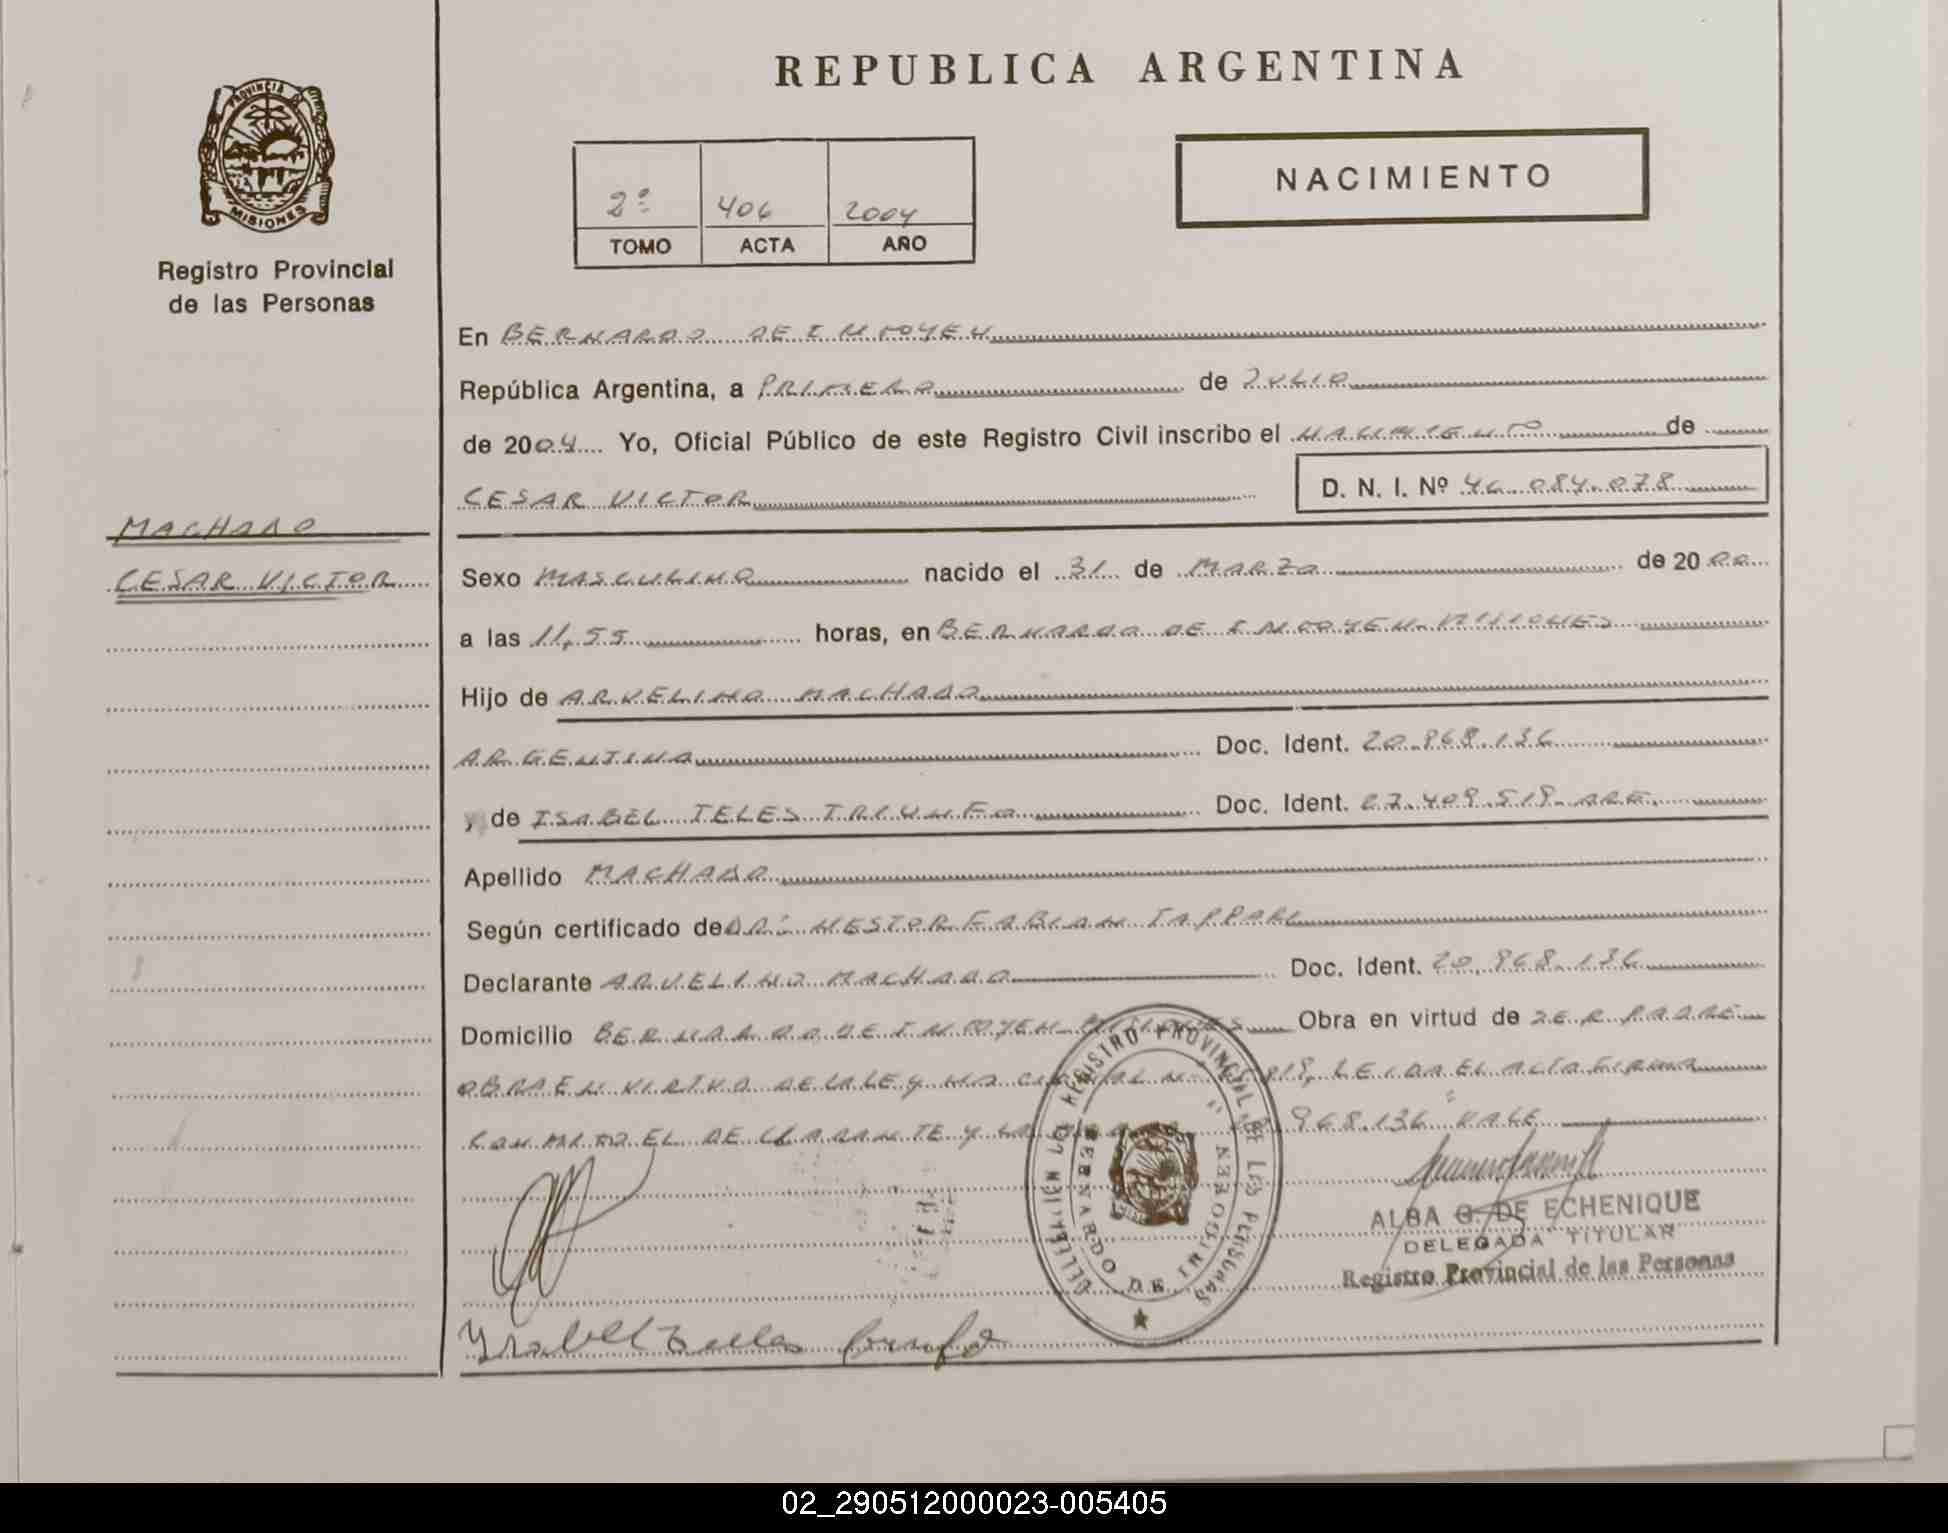 REPUBLICA ARGENTINA
PROVINCIA DE
MISIONES
Registro Provincial
de las Personas
2º 406 2004
TOMO ACTA AÑO
NACIMIENTO
En BERNARDO DE IRIGOYEN
República Argentina, a PRIMERO de JULIO
de 2004 Yo, Oficial Público de este Registro Civil inscribo el NACIMIENTO de
CESAR VICTOR D. N. I. Nº 46.084.078
MACHADO
CESAR VICTOR
Sexo MASCULINO nacido el 31 de MARZO de 2000
a las 11,55 horas, en BERNARDO DE IRIGOYEN-MISIONES
Hijo de ARVELINO MACHADO
ARGENTINA Doc. Ident. 20.968.136
y de ISABEL TELES TRIUNFO Doc. Ident. 07.409.519
Apellido MACHADO
Según certificado de DR. NESTOR FABIAN TAPPARI
Declarante ARVELINO MACHADO Doc. Ident. 20.968.136
Domicilio BERNARDO DE IRIGOYEN MISIONES Obra en virtud de SER PADRE
OBRA EN VIRTUD DE LA LEY NACIONAL LEIDA EL ACTA FIRMA
CONMIGO EL DECLARANTE Y LA 968.136 VALE
DELEGACIÓN DEL REGISTRO PROVINCIAL DE LAS PERSONAS
BERNARDO DE IRIGOYEN
ALBA G. DE ECHENIQUE
DELEGADA TITULAR
Registro Provincial de las Personas
Ysabel Teles
02_290512000023-005405